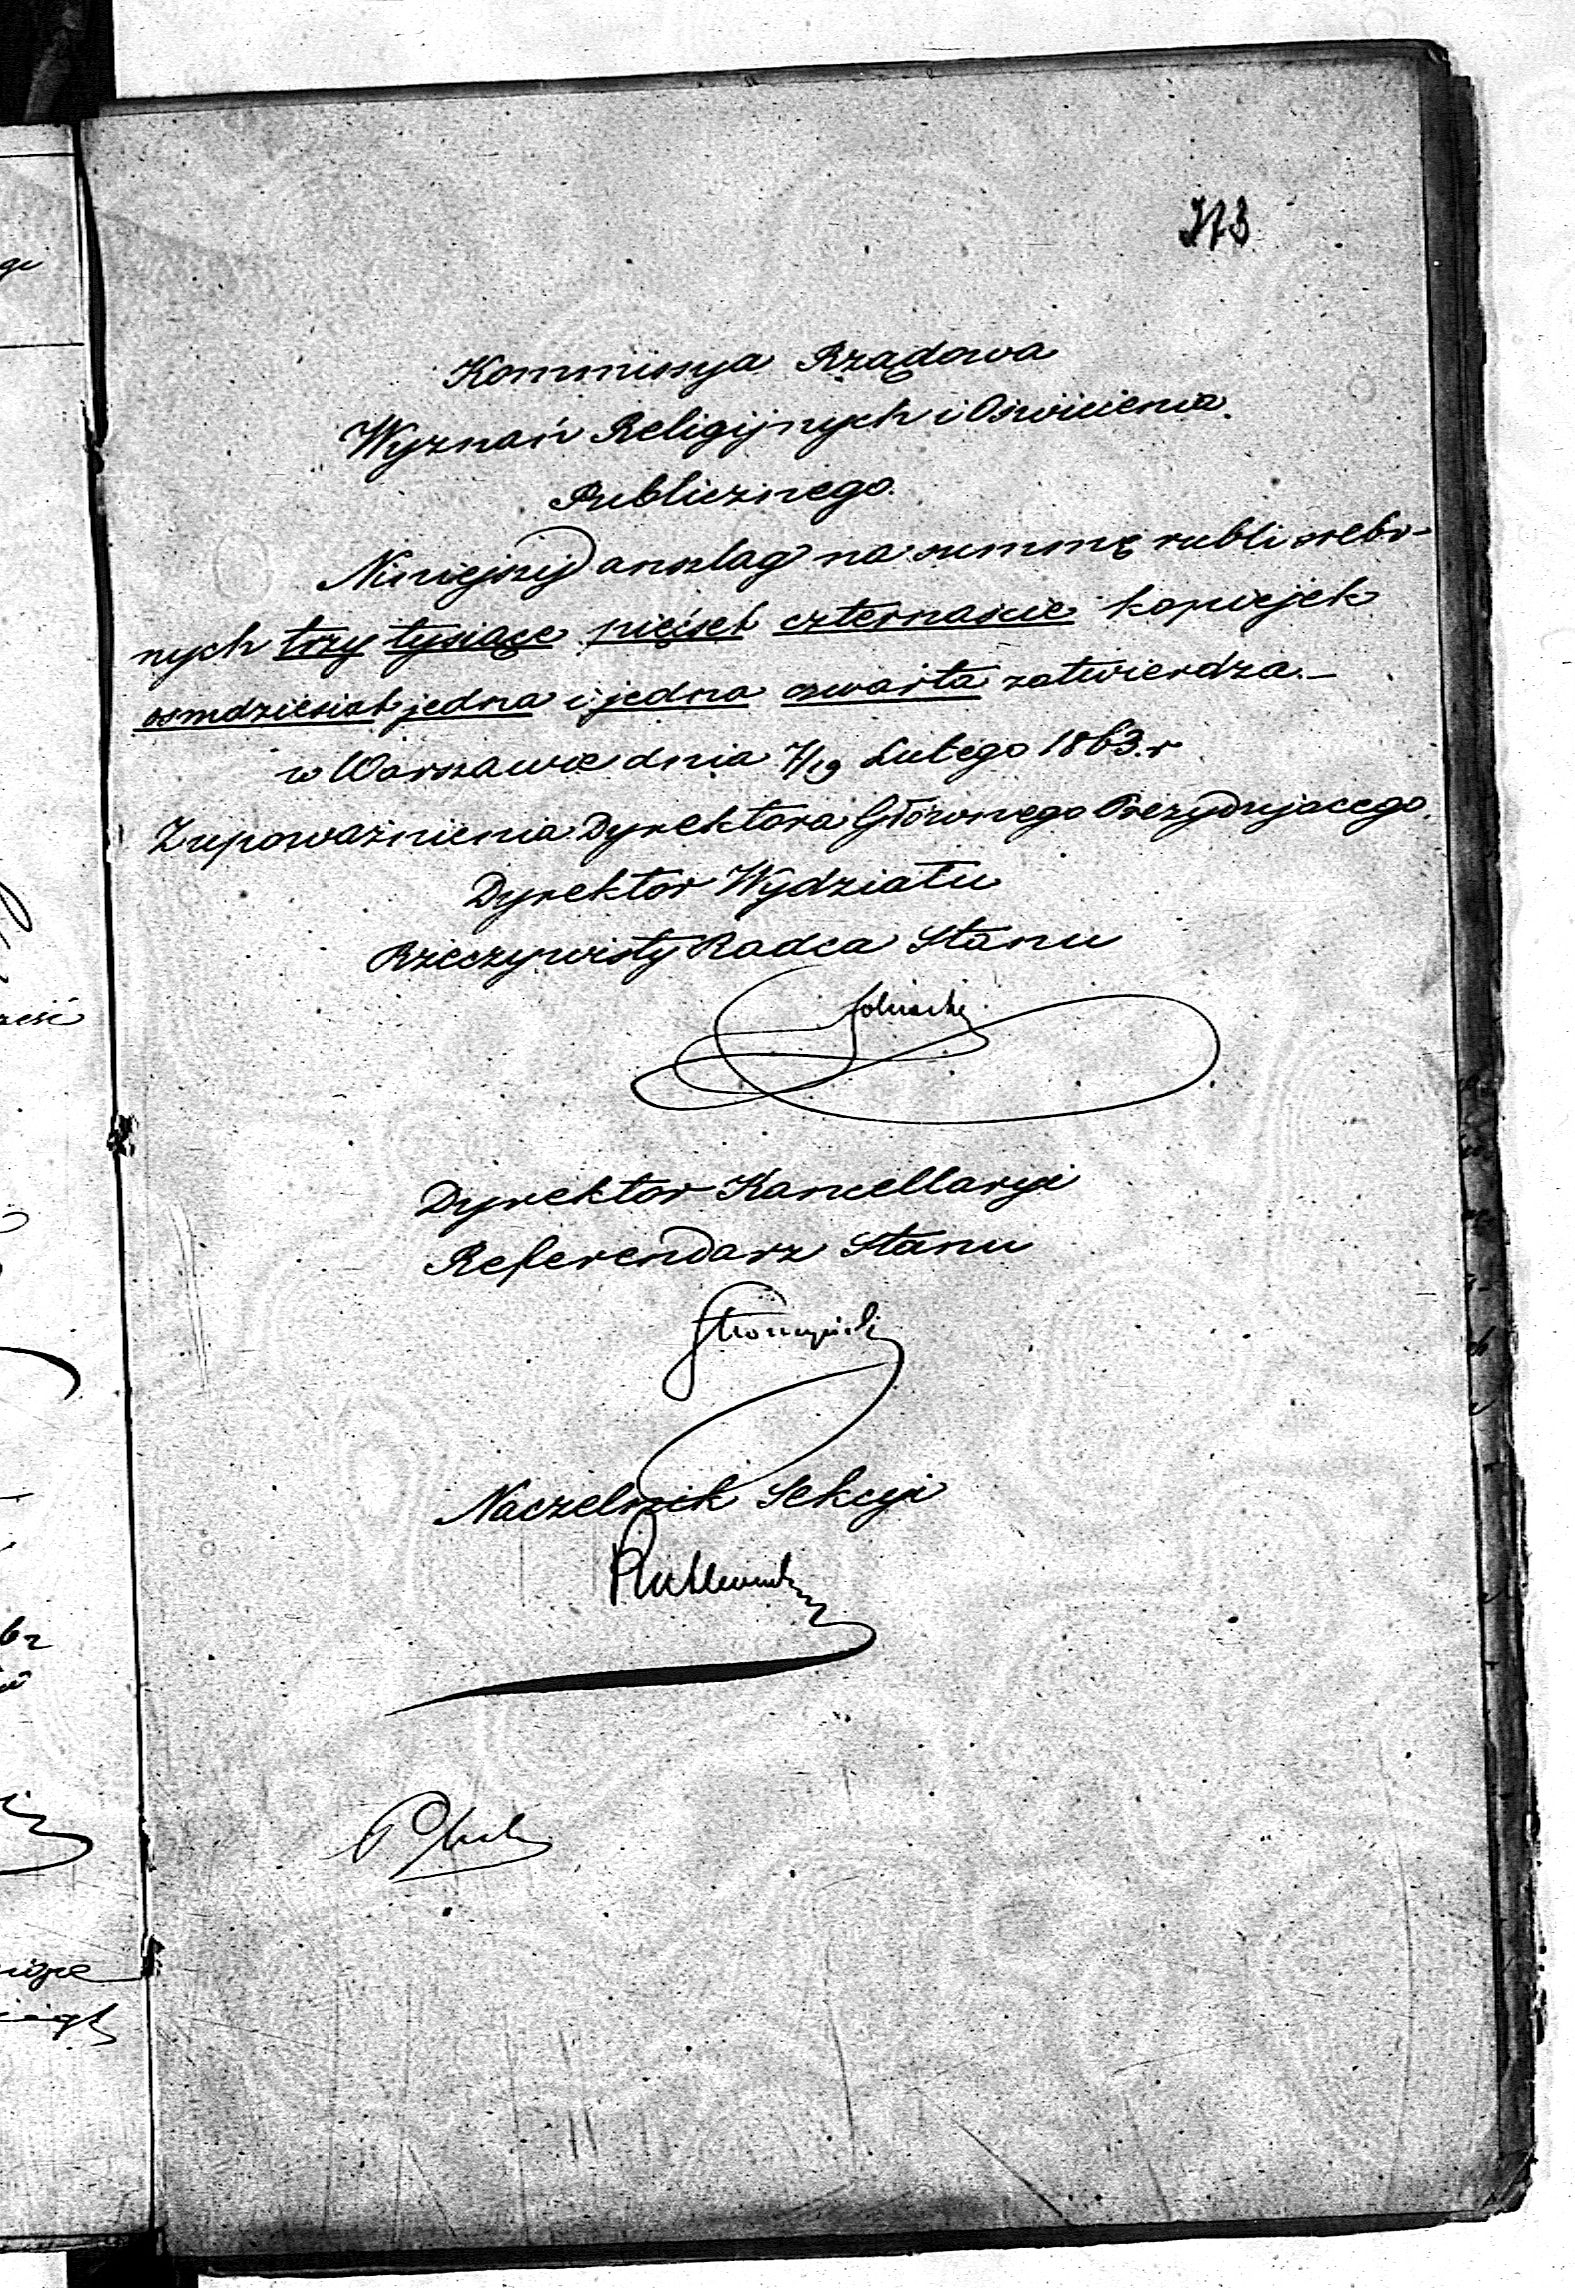 373
Kommissya Rządowa
Wyznań Religijnych i Oświecenia
Publicznego.
Niniejszy anszlag na summę rubli srebr-
nych trzy tysiące pięćset czternaście kopiejek
osmdziesiąt jedna i jedna czwarta zatwierdza.—
w Warszawie dnia 7/19 Lutego 1863 r.
Z upoważnienia Dyrektora Głównego Prezydującego.
Dyrektor Wydziału
Rzeczywisty Radca Stanu
Dyrektor Kancellaryi
Referendarz Stanu
Stronczyński
Naczelnik Sekcyi